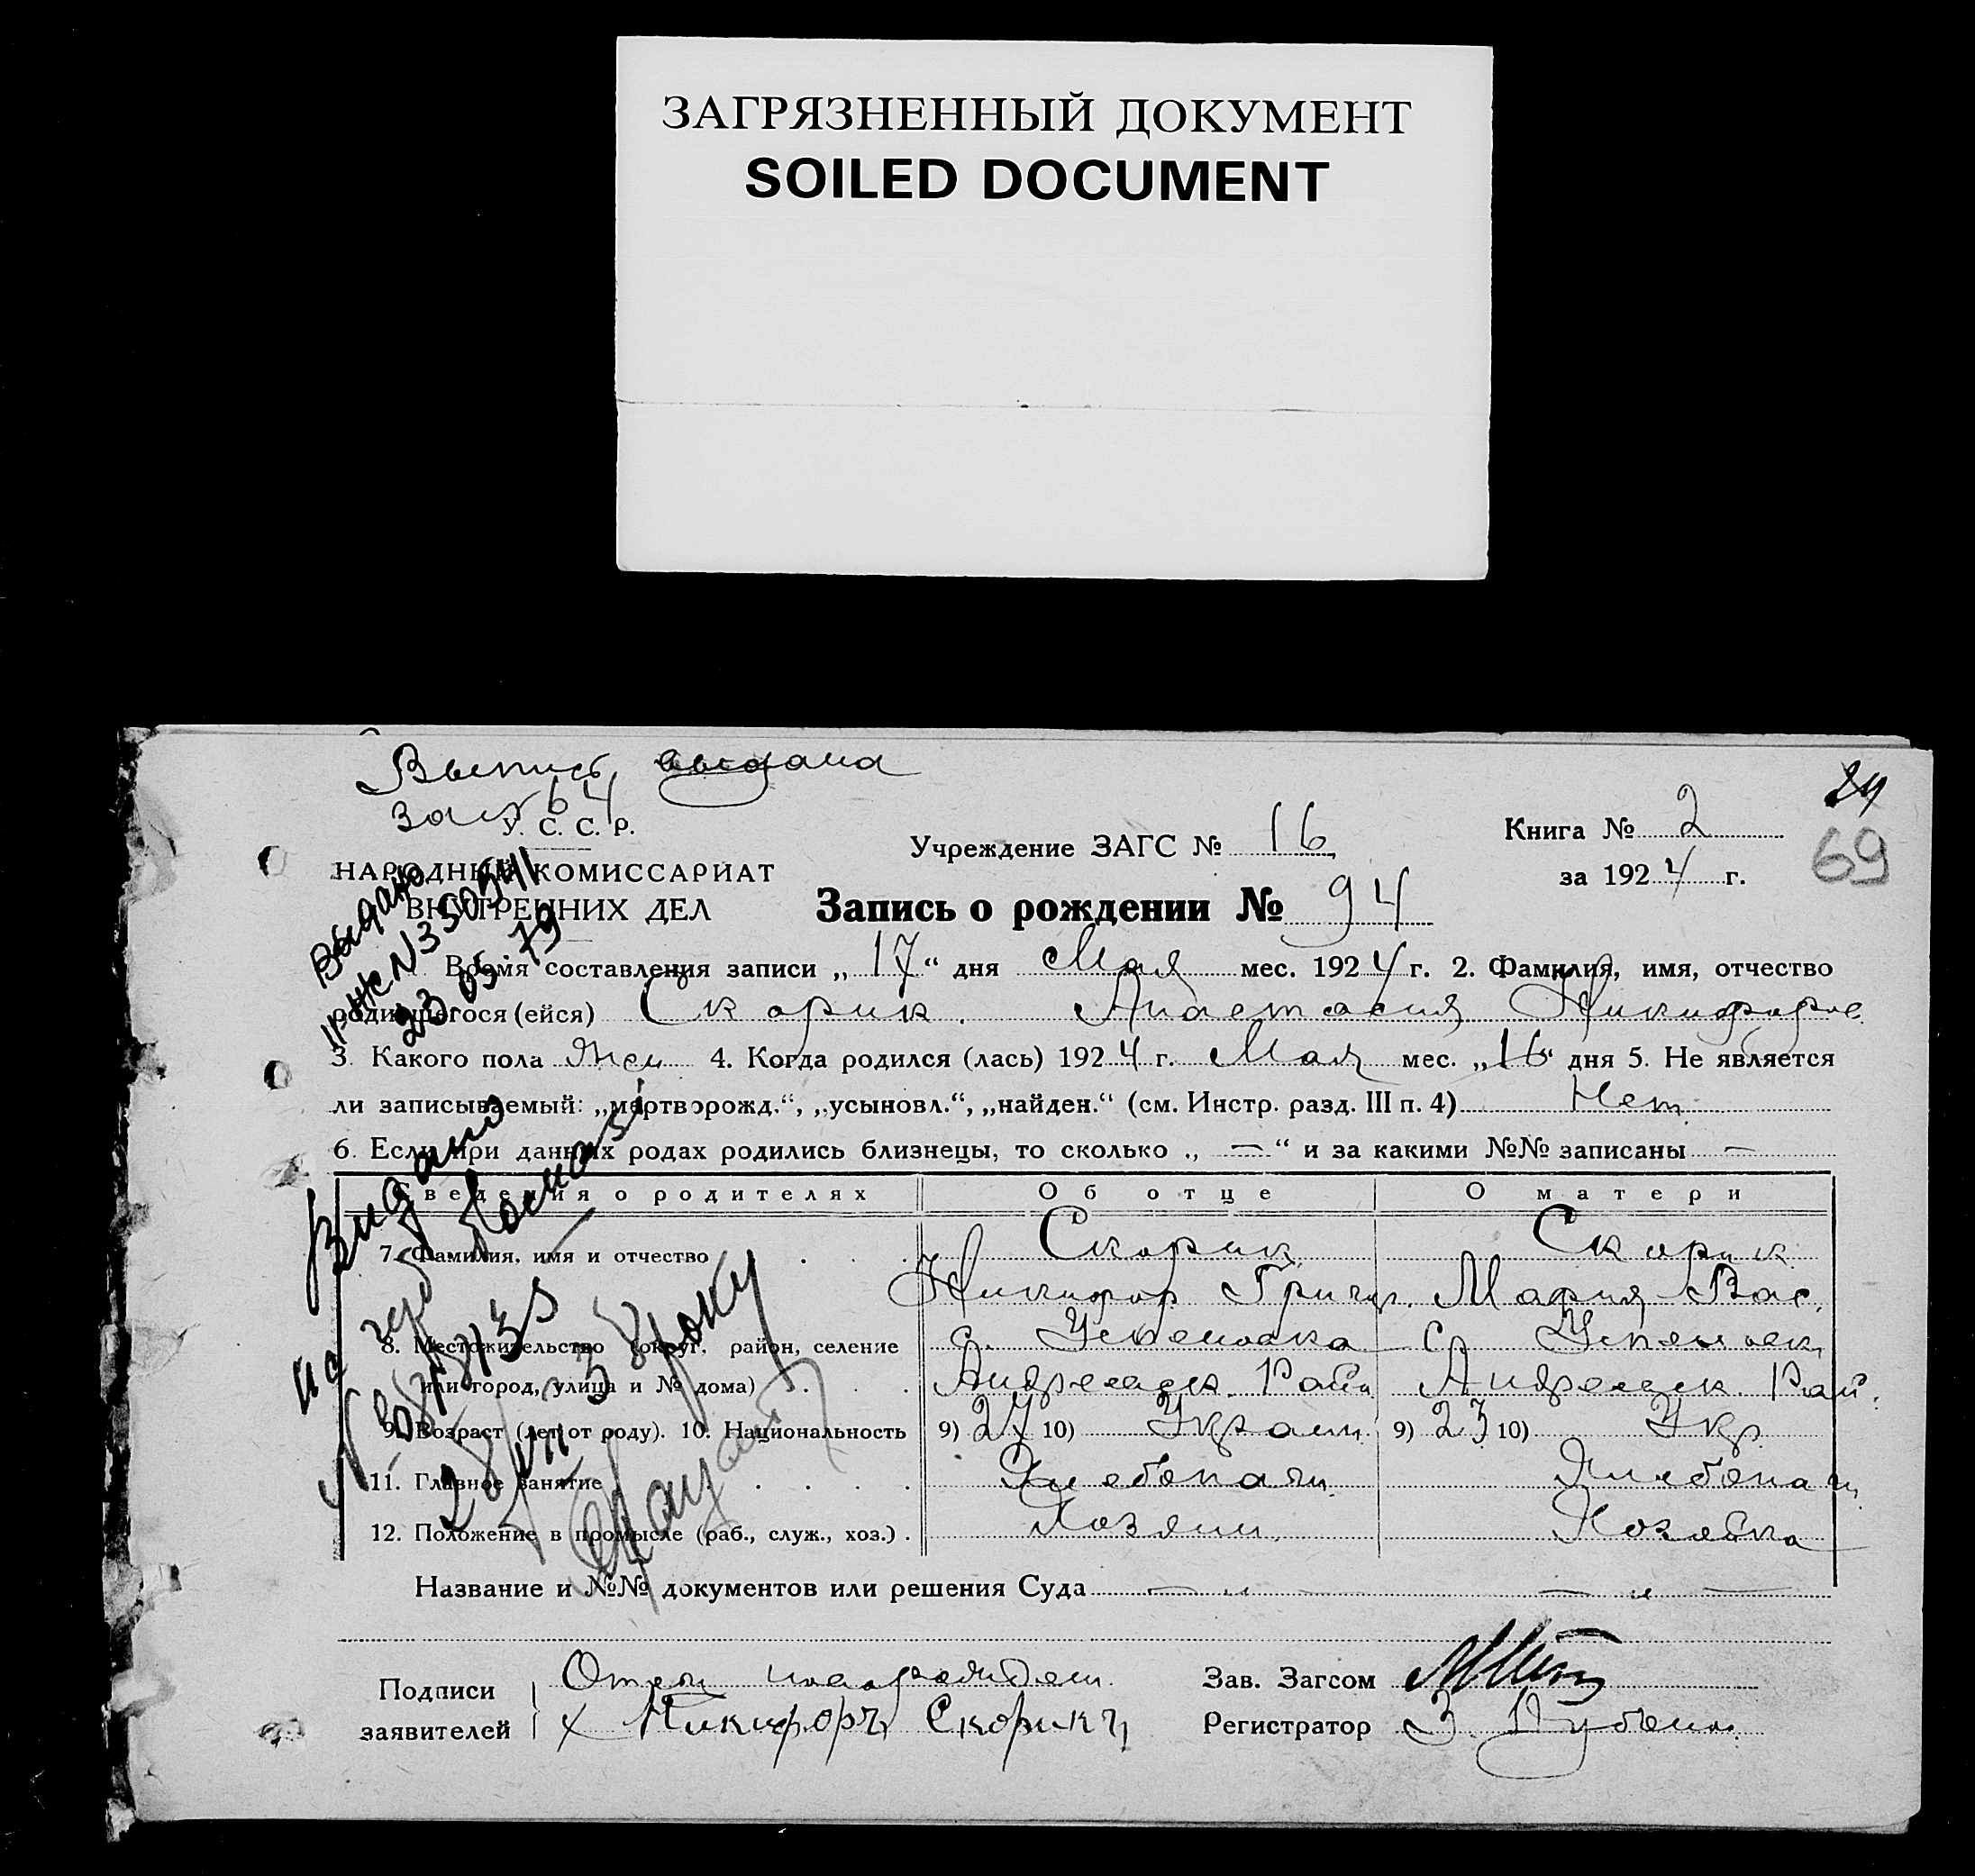 ЗАГРЯЗНЕННЫЙ ДОКУМЕНТ
SOILED DOCUMENT
Выпись выдана
за № 64
24
69
У. С. С. Р.
НАРОДНЫЙ КОМИССАРИАТ
ВНУТРЕННИХ ДЕЛ
Учреждение ЗАГС № 16
Книга № 2
за 1924 г.
Запись о рождении № 94
Выдано
II-ЖС N 350941
23.05.79
Время составления записи „17“ дня Мая мес. 1924 г. 2. Фамилия, имя, отчество
родившегося (ейся) Скорик. Анастасия Никифоров
3. Какого пола Жен 4. Когда родился (лась) 1924 г. Мая мес. „16“ дня 5. Не является
ли записываемый: „мертворожд.“, „усыновл.“, „найден.“ (см. Инстр. разд. III п. 4) Нет
6. Если при данных родах родились близнецы, то сколько „ — “ и за какими №№ записаны —
Сведения о родителях Об отце О матери
7. Фамилия, имя и отчество Скорик Скорик
Никифор Григор. Мария Вас.
8. Местожительство (округ, район, селение с. Успеновка с. Успеновк
или город, улица и № дома) Андреевск. Район Андреевск. Рай.
9. Возраст (лет от роду). 10. Национальность 9) 27 10) Украин 9) 23 10) Укр
11. Главное занятие Хлебопаш. Хлебопаш
12. Положение в промысле (раб., служ., хоз.) Хозяин Хозяйка
Название и №№ документов или решения Суда — „ — — „ —
Видано
28/VII 38 року
Подписи
заявителей
Отец
х Никифоръ Скорикъ
Зав. Загсом
Регистратор З.